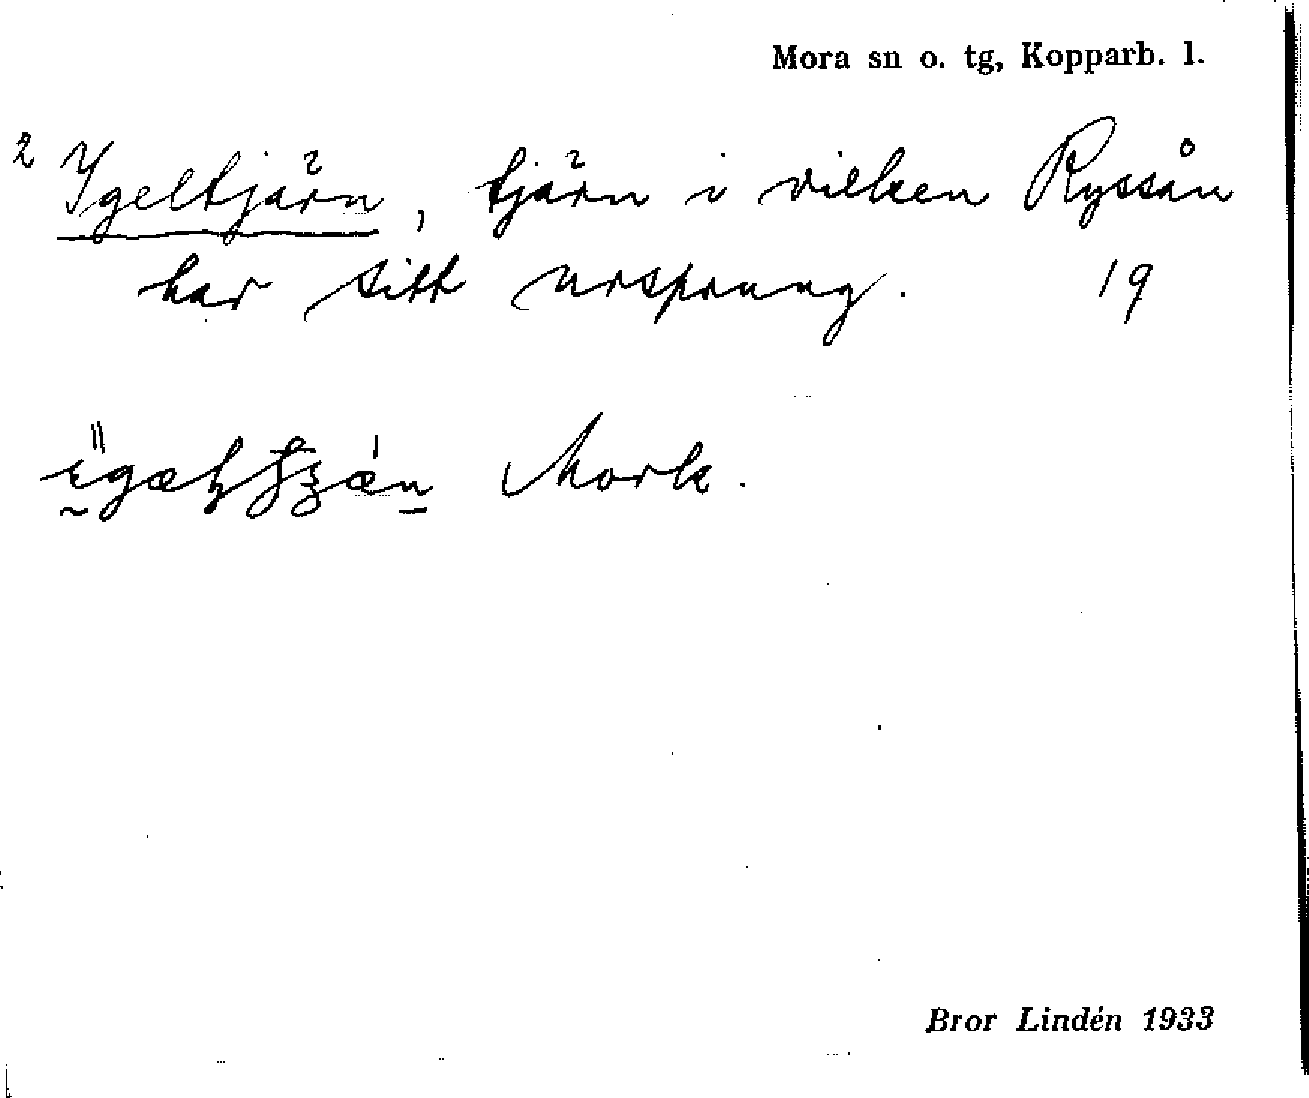 Mora sn o. tg, Kopparb. l.
2 Igeltjärn, tjärn i vilken Ryssån
har sitt ursprung. 19
Mork.
Bror Lindén 1933